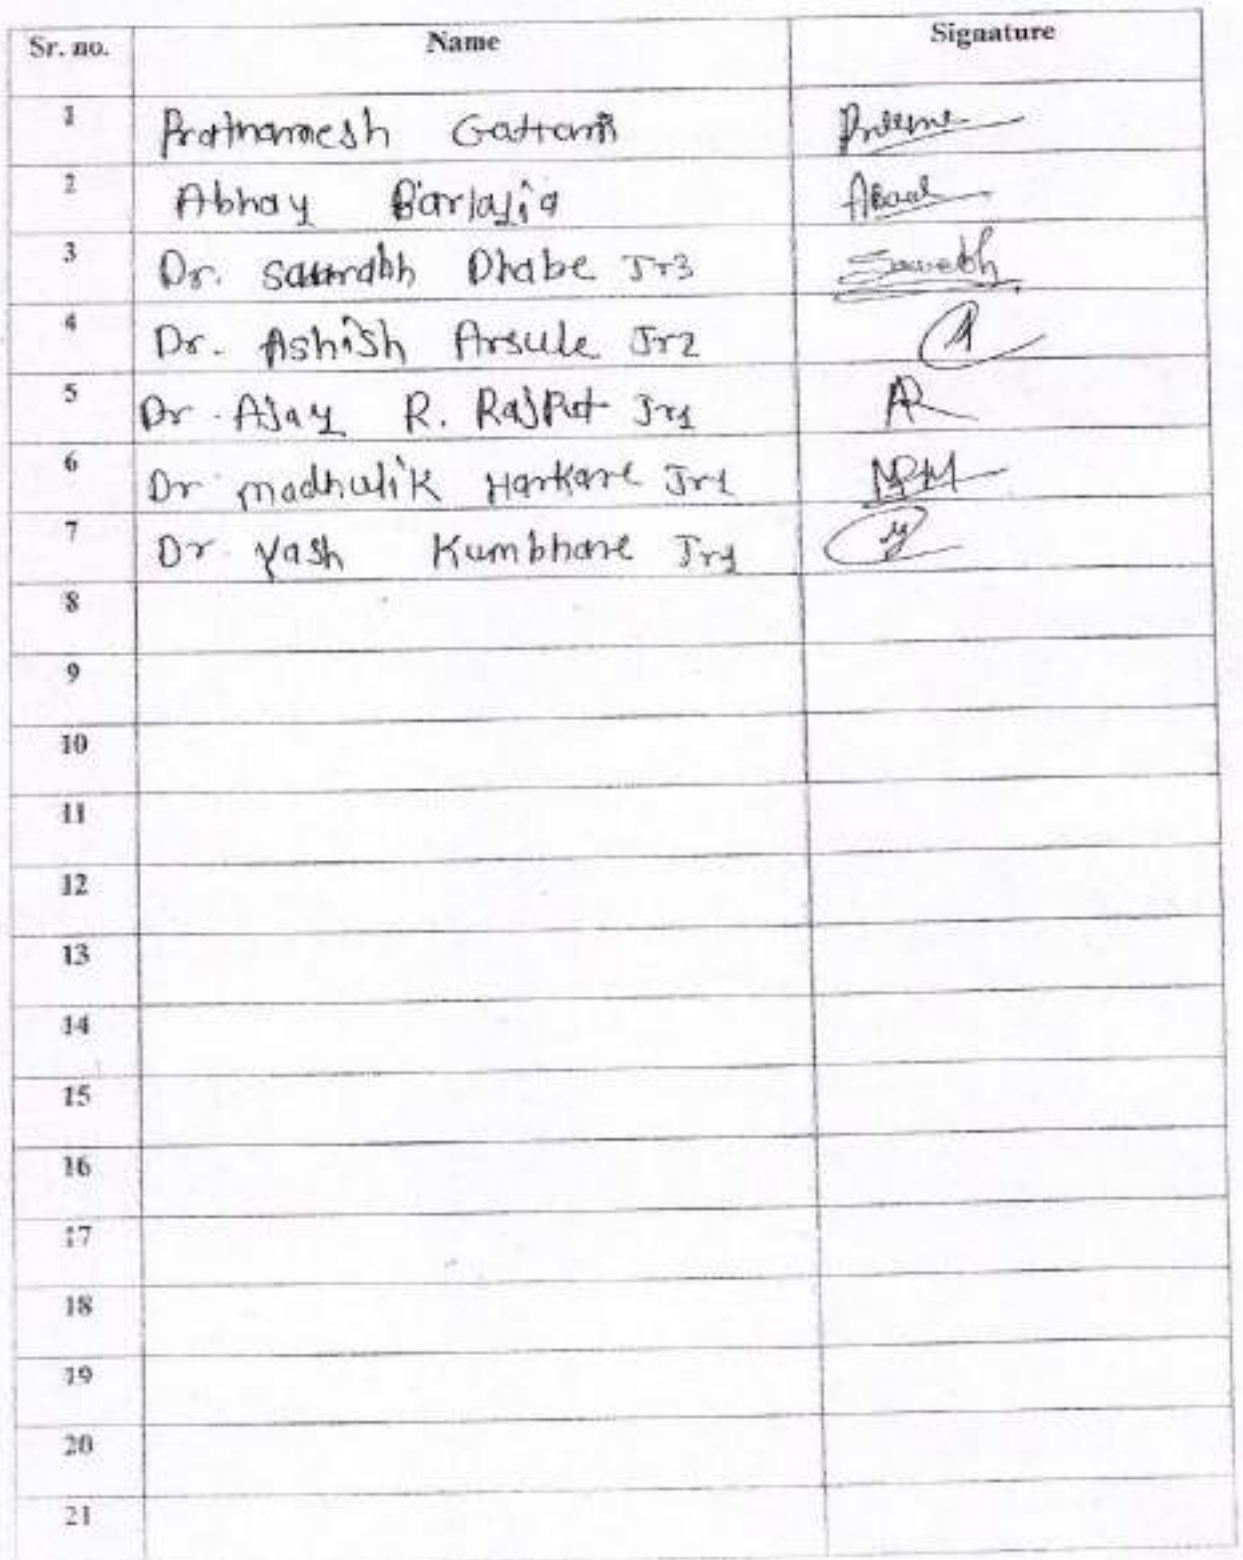 Sr. no. Name Signature
1 Prathamesh Gattani
2 Abhay Barlajia
3 Dr. Saurabh Dhabe Jr3 Saurabh
4 Dr. Ashish Arsule Jr2
5 Dr. Ajay R. Rajput Jr1 AR
6 Dr madhulik Harkare Jr1
7 Dr. Yash Kumbhare Jr1
8
9
10
11
12
13
14
15
16
17
18
19
20
21